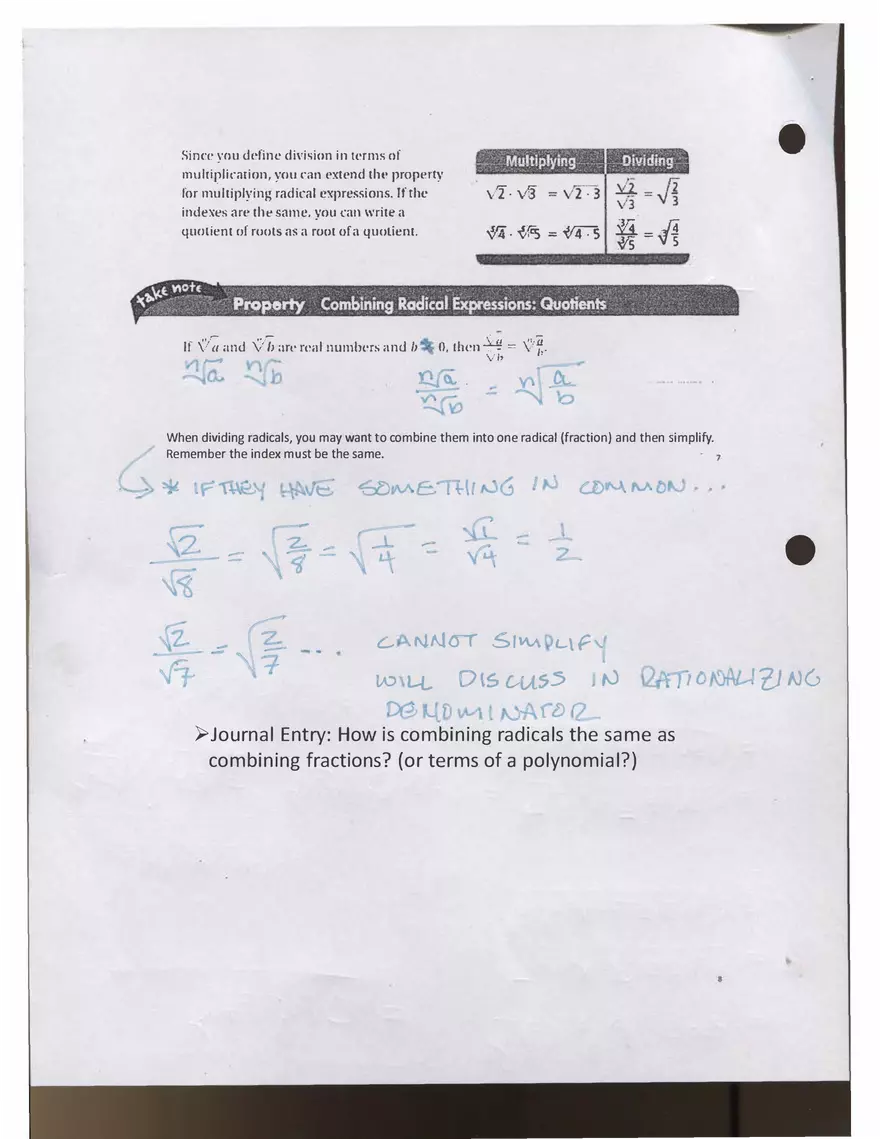 Since you define division in terms of
multiplication, you can extend the property
for multiplying radical expressions. If the
indexes are the same, you can write a
quotient of roots as a root of a quotient.
Multiplying Dividing
√2 · √3 = √2 · 3 √2/√3 = √(2/3)
∛4 · ∛5 = ∛4 · 5 ∛4/∛5 = ∛(4/5)
take note
Property Combining Radical Expressions: Quotients
If ⁿ√a and ⁿ√b are real numbers and b ≠ 0, then ⁿ√a/ⁿ√b = ⁿ√(a/b).
ⁿ√a ⁿ√b ⁿ√a/ⁿ√b = ⁿ√(a/b)
When dividing radicals, you may want to combine them into one radical (fraction) and then simplify.
Remember the index must be the same.
7
* IF THEY HAVE SOMETHING IN COMMON...
√2/√8 = √(2/8) = √(1/4) = √1/√4 = 1/2
√2/√7 = √(2/7) ... CANNOT SIMPLIFY
WILL DISCUSS IN RATIONALIZING
DENOMINATOR
➢Journal Entry: How is combining radicals the same as
combining fractions? (or terms of a polynomial?)
8